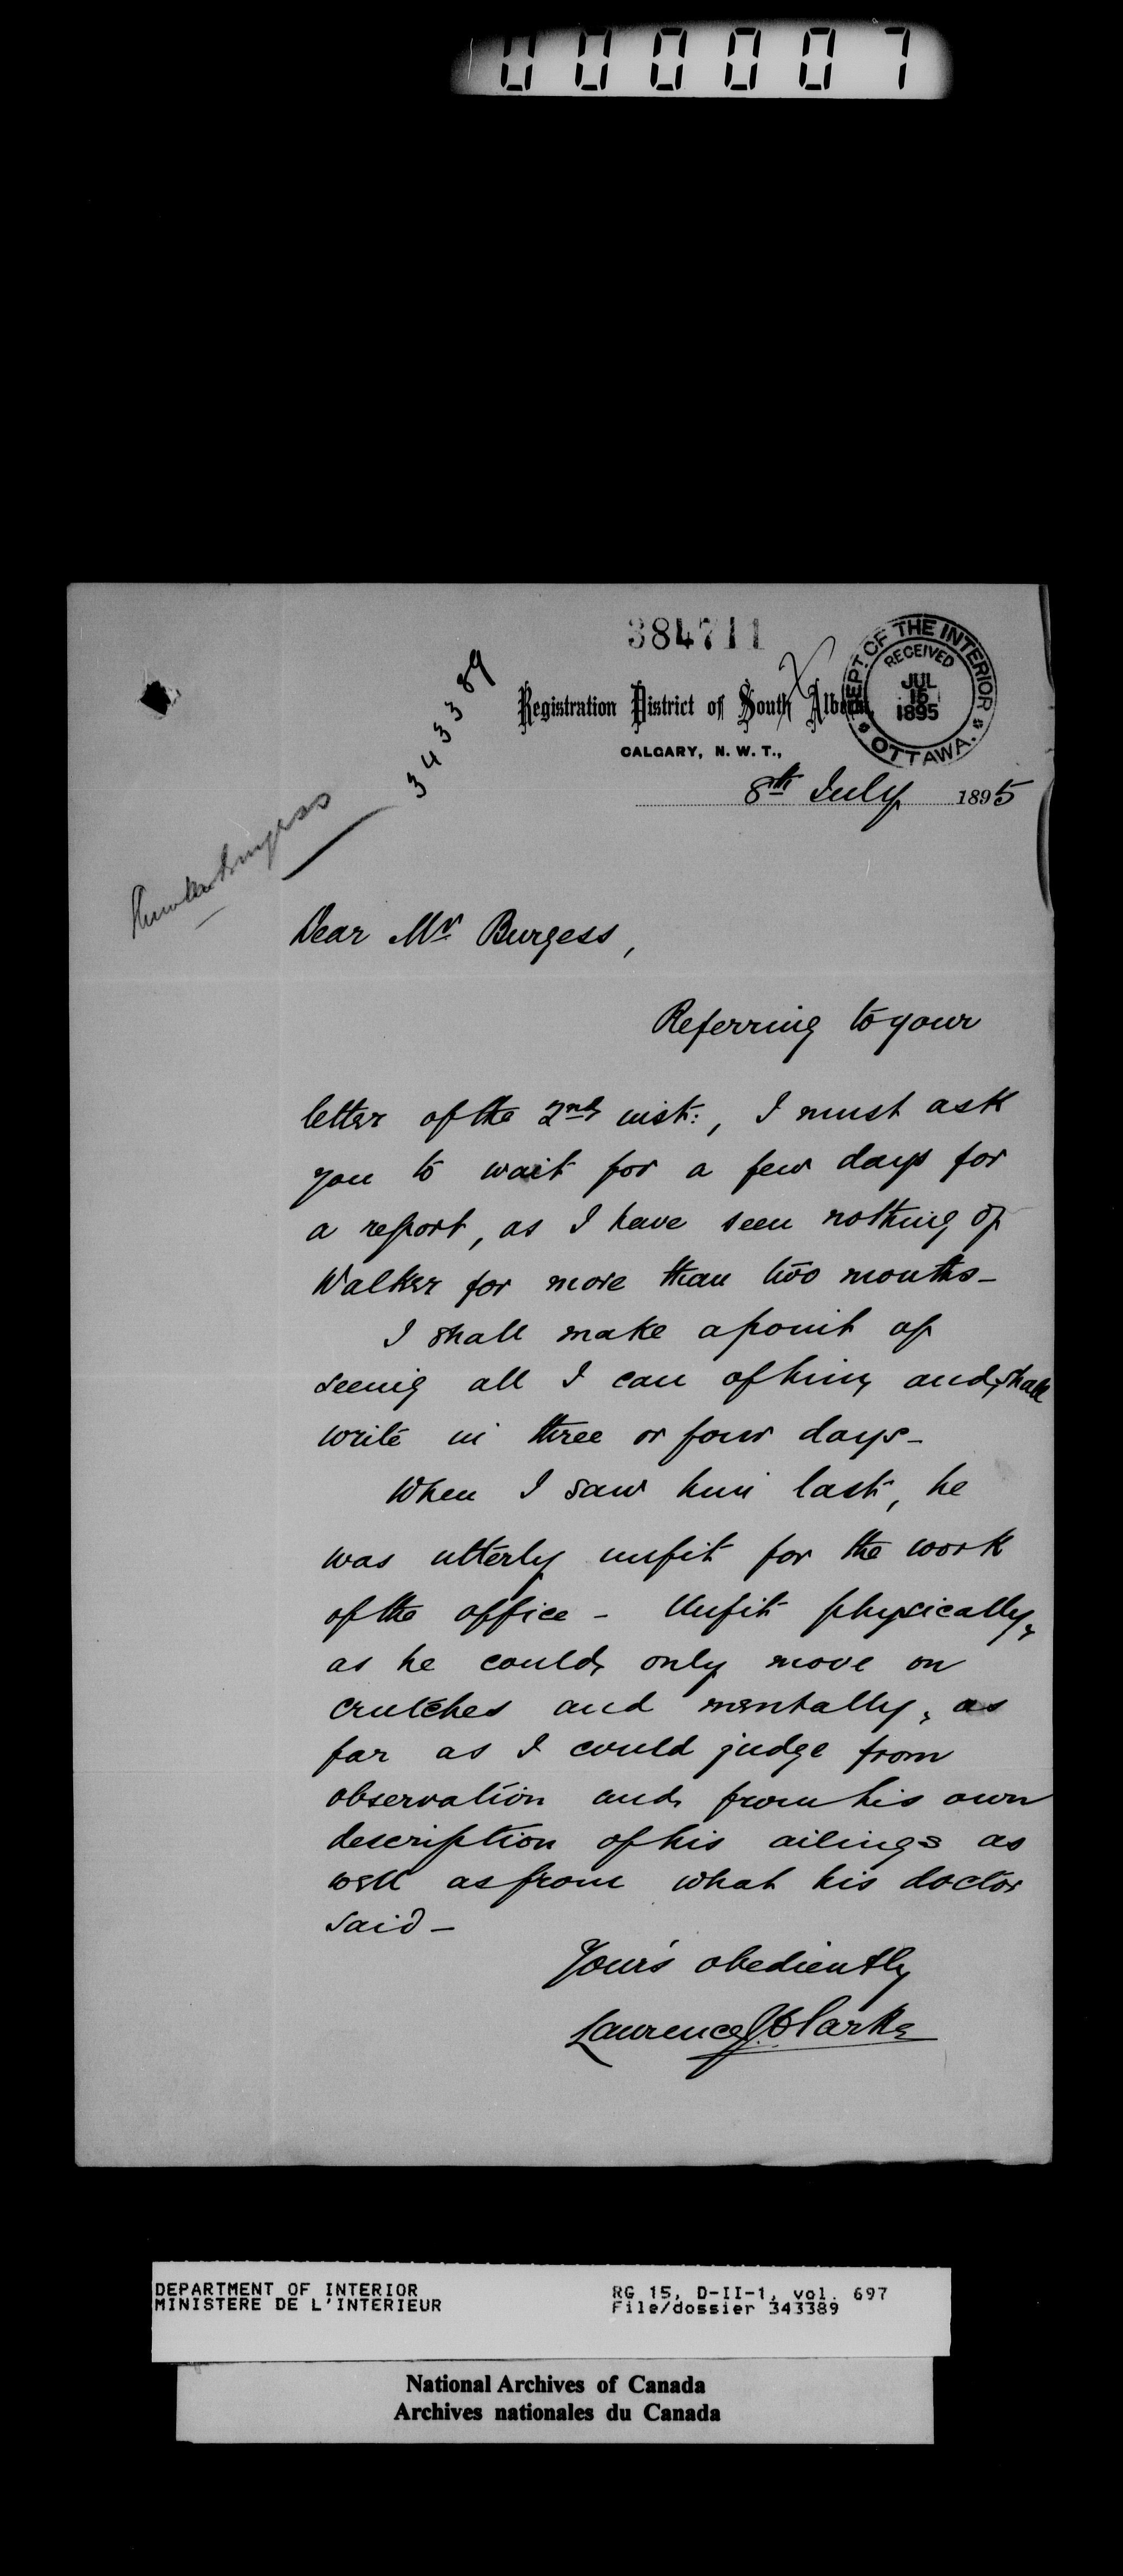 000007
384711
343389
Registration District of South Alberta,
DEPT. OF THE INTERIOR
RECEIVED
JUL
15
1895
OTTAWA.
CALGARY, N. W. T.,
8th July 1895
Burgess
Dear Mr Burgess,
Referring to your
letter of the 2nd inst:, I must ask
you to wait for a few days for
a report, as I have seen nothing of
Walker for more than two months –
I shall make a point of
seeing all I can of him and shall
write in three or four days –
When I saw him last, he
was utterly unfit for the work
of the office – Unfit physically,
as he could only move on
crutches and mentally, as
far as I could judge from
observation and from his own
description of his ailings as
well as from what his doctor
said –
Your's obediently
Laurence J. Clarke
DEPARTMENT OF INTERIOR
MINISTERE DE L'INTERIEUR
RG 15, D-II-1, vol. 697
File/dossier 343389
National Archives of Canada
Archives nationales du Canada